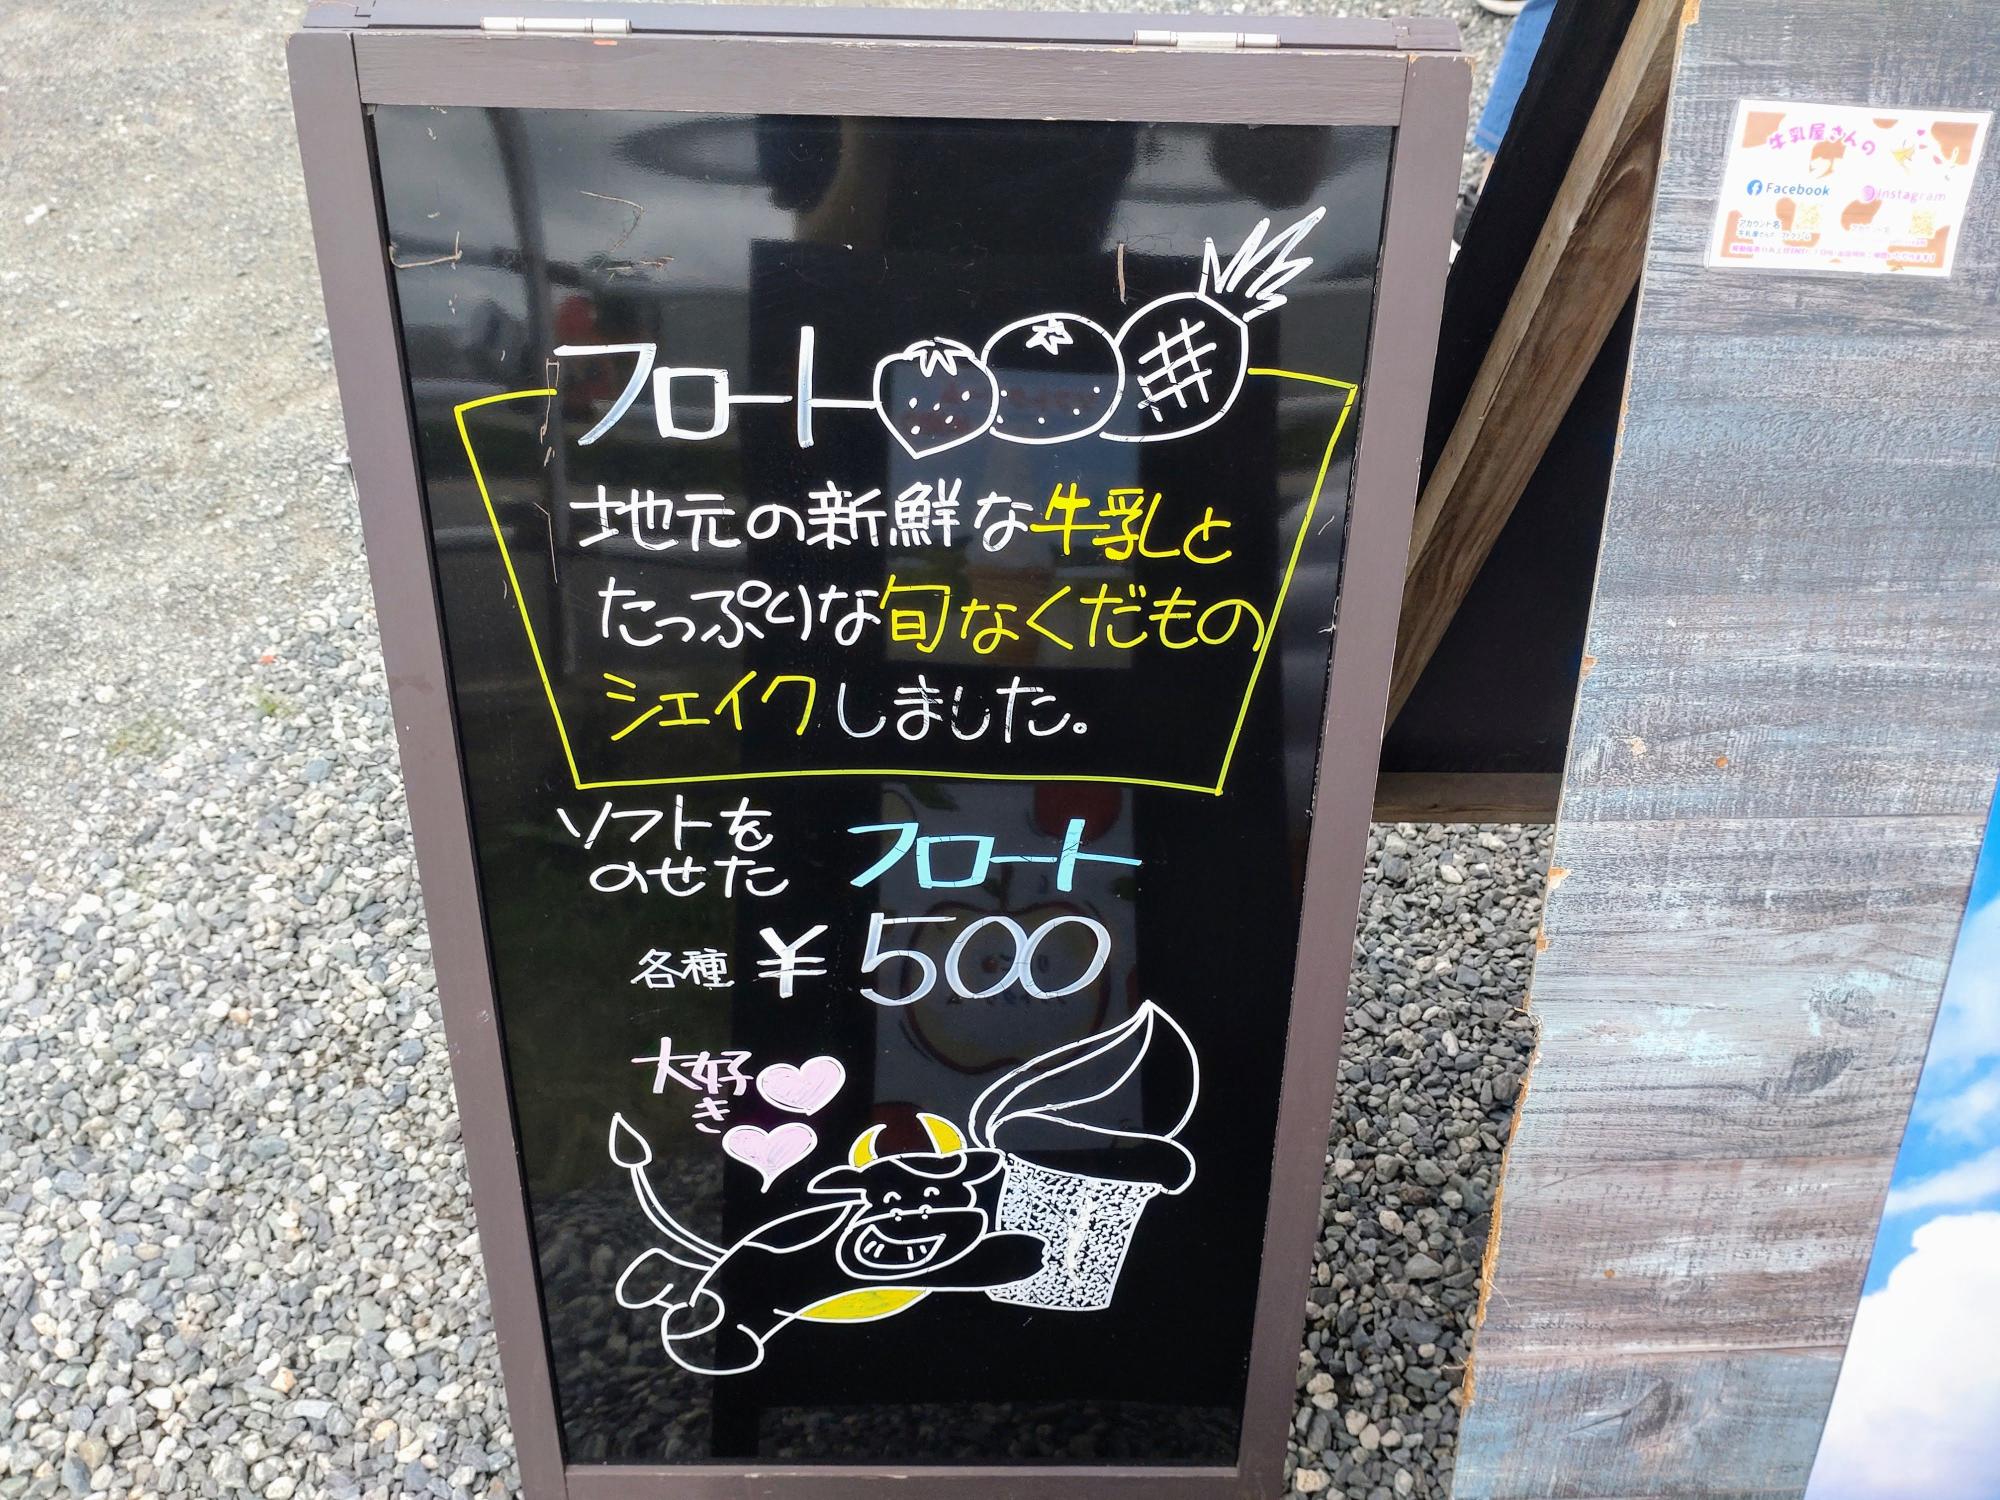 フロート
地元の新鮮な牛乳と
たっぷりな旬なくだもの
シェイクしました。
ソフトを
のせた
フロート
各種 ¥500
大好き
牛乳屋さんの
Facebook
Instagram
アカウント名
アカウント名